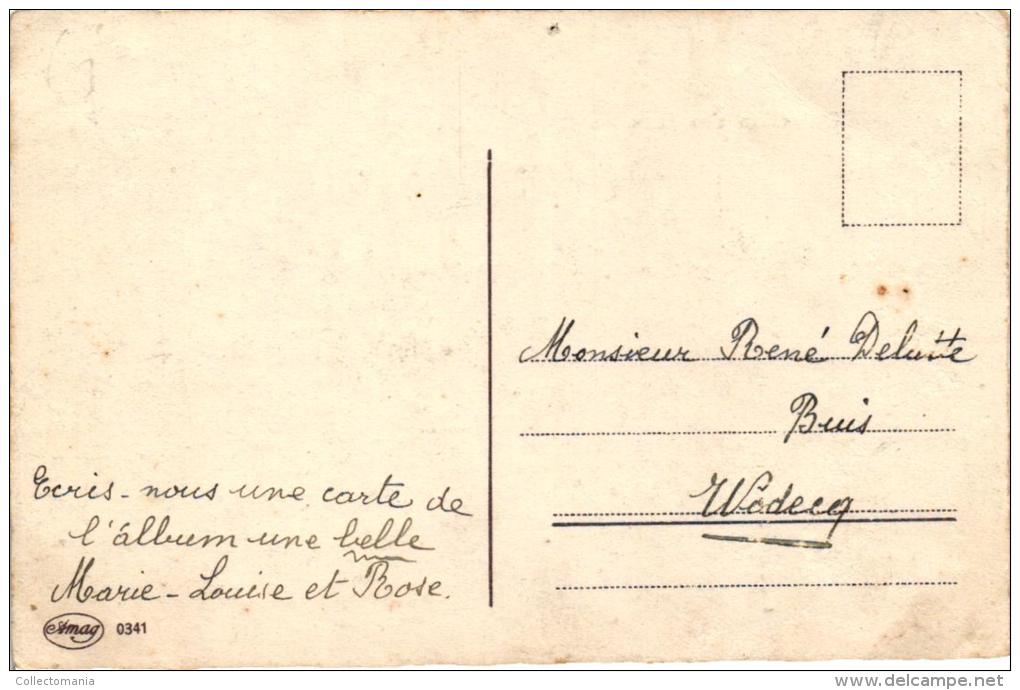 Ecris-nous une carte de
l'álbum une belle
Marie-Louise et Rose.
Amag 0341
Monsieur René
Buis
Wodecq
Collectomania
www.delcampe.net